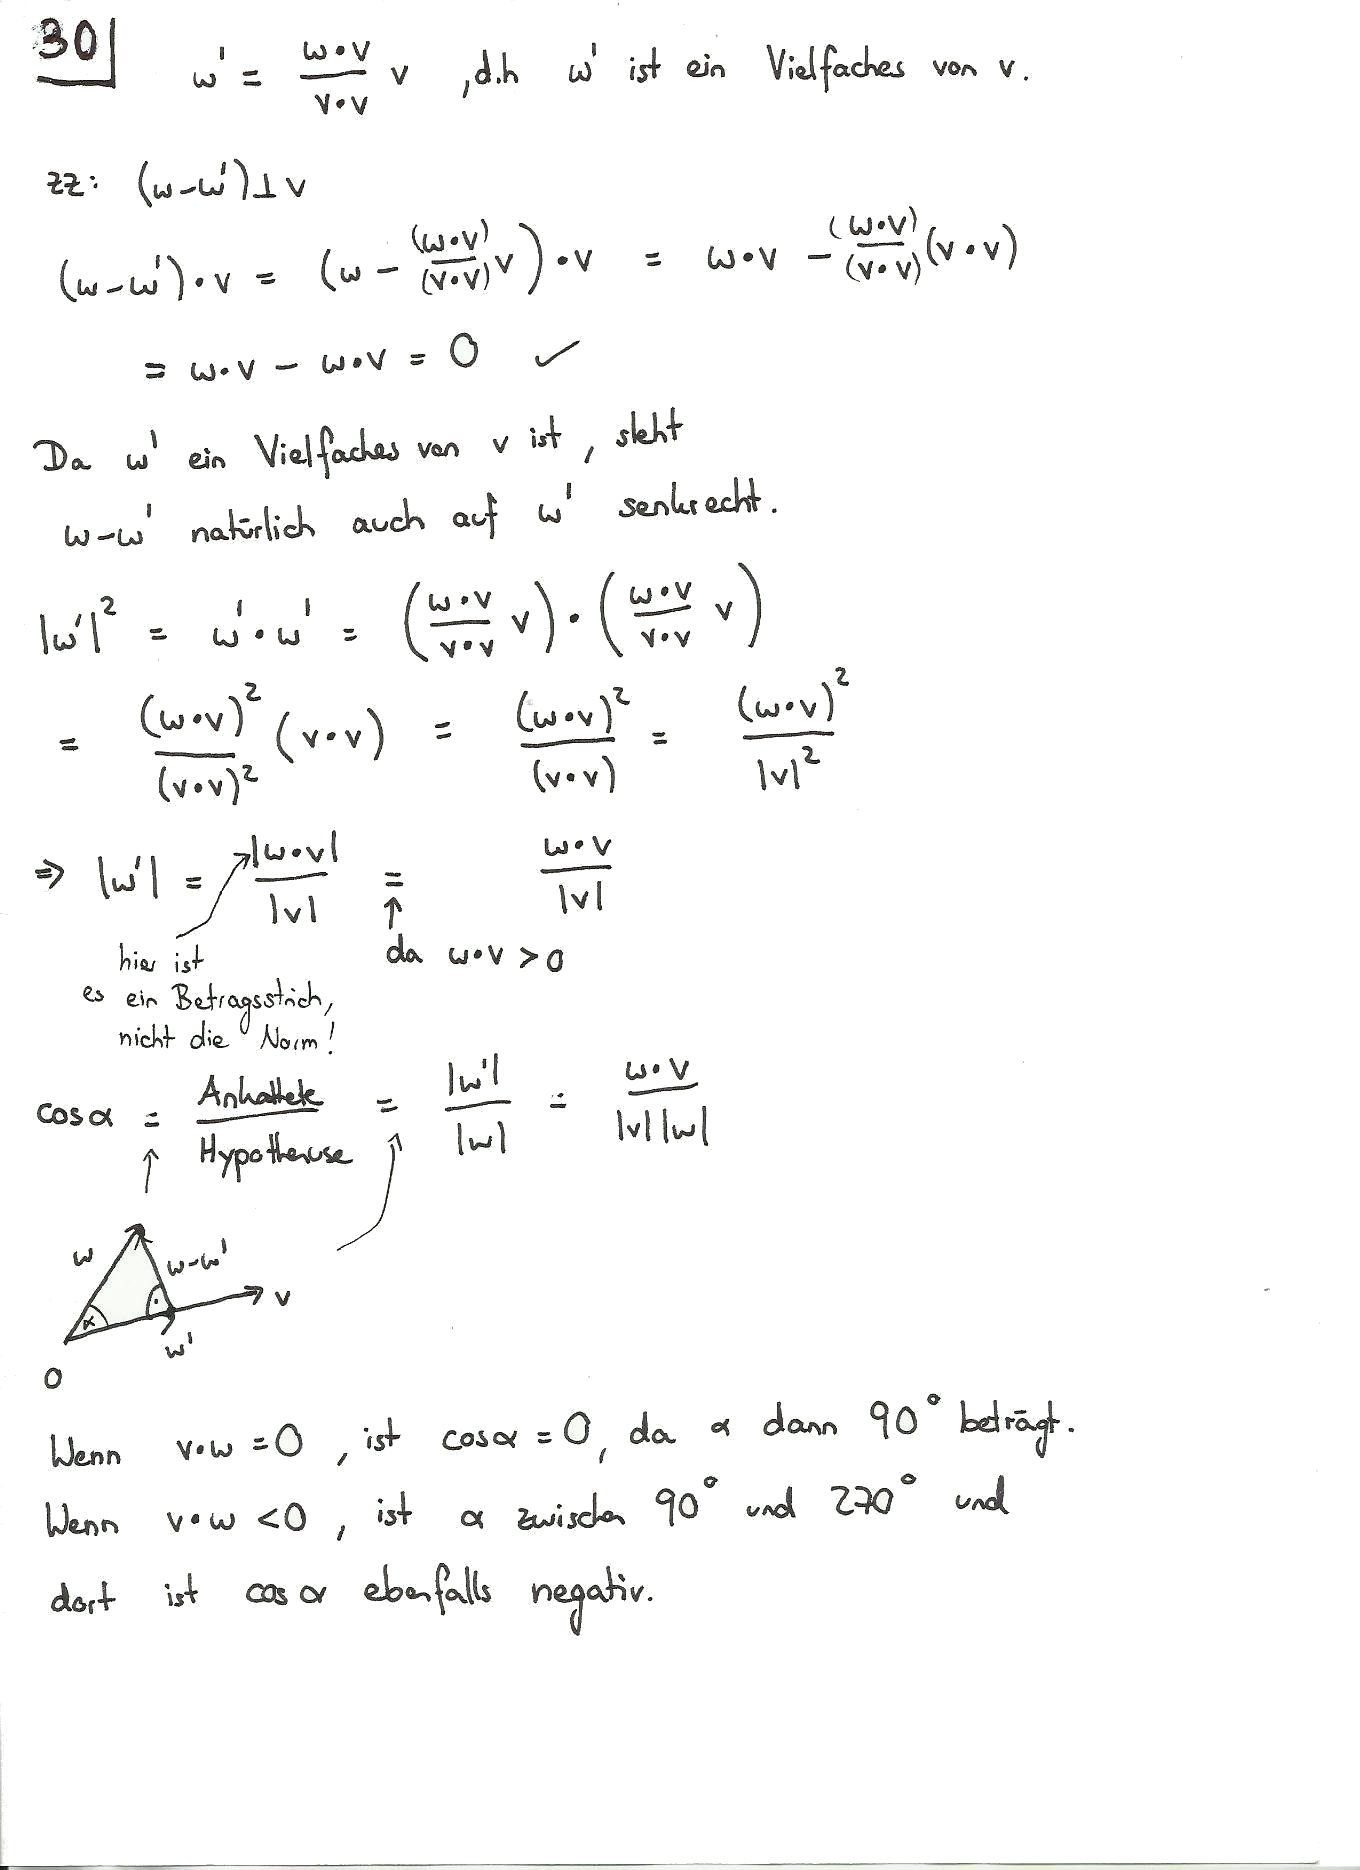 30
w' = (w•v)/(v•v) v , d.h w' ist ein Vielfaches von v.
zz: (w-w')⊥v
(w-w')•v = (w - (w•v)/(v•v) v)•v = w•v - (w•v)/(v•v) (v•v)
= w•v - w•v = 0 ✓
Da w' ein Vielfaches von v ist, steht
w-w' natürlich auch auf w' senkrecht.
|w'|² = w'•w' = ((w•v)/(v•v) v)•((w•v)/(v•v) v)
= (w•v)²/(v•v)² (v•v) = (w•v)²/(v•v) = (w•v)²/|v|²
⇒ |w'| = |w•v|/|v| = w•v/|v|
da w•v > 0
hier ist
es ein Betragsstrich,
nicht die Norm!
cos α = Ankathete/Hypothenuse = |w'|/|w| = w•v/(|v||w|)
w
w-w'
v
α
w'
0
Wenn v•w = 0, ist cos α = 0, da α dann 90° beträgt.
Wenn v•w < 0, ist α zwischen 90° und 270° und
dort ist cos α ebenfalls negativ.